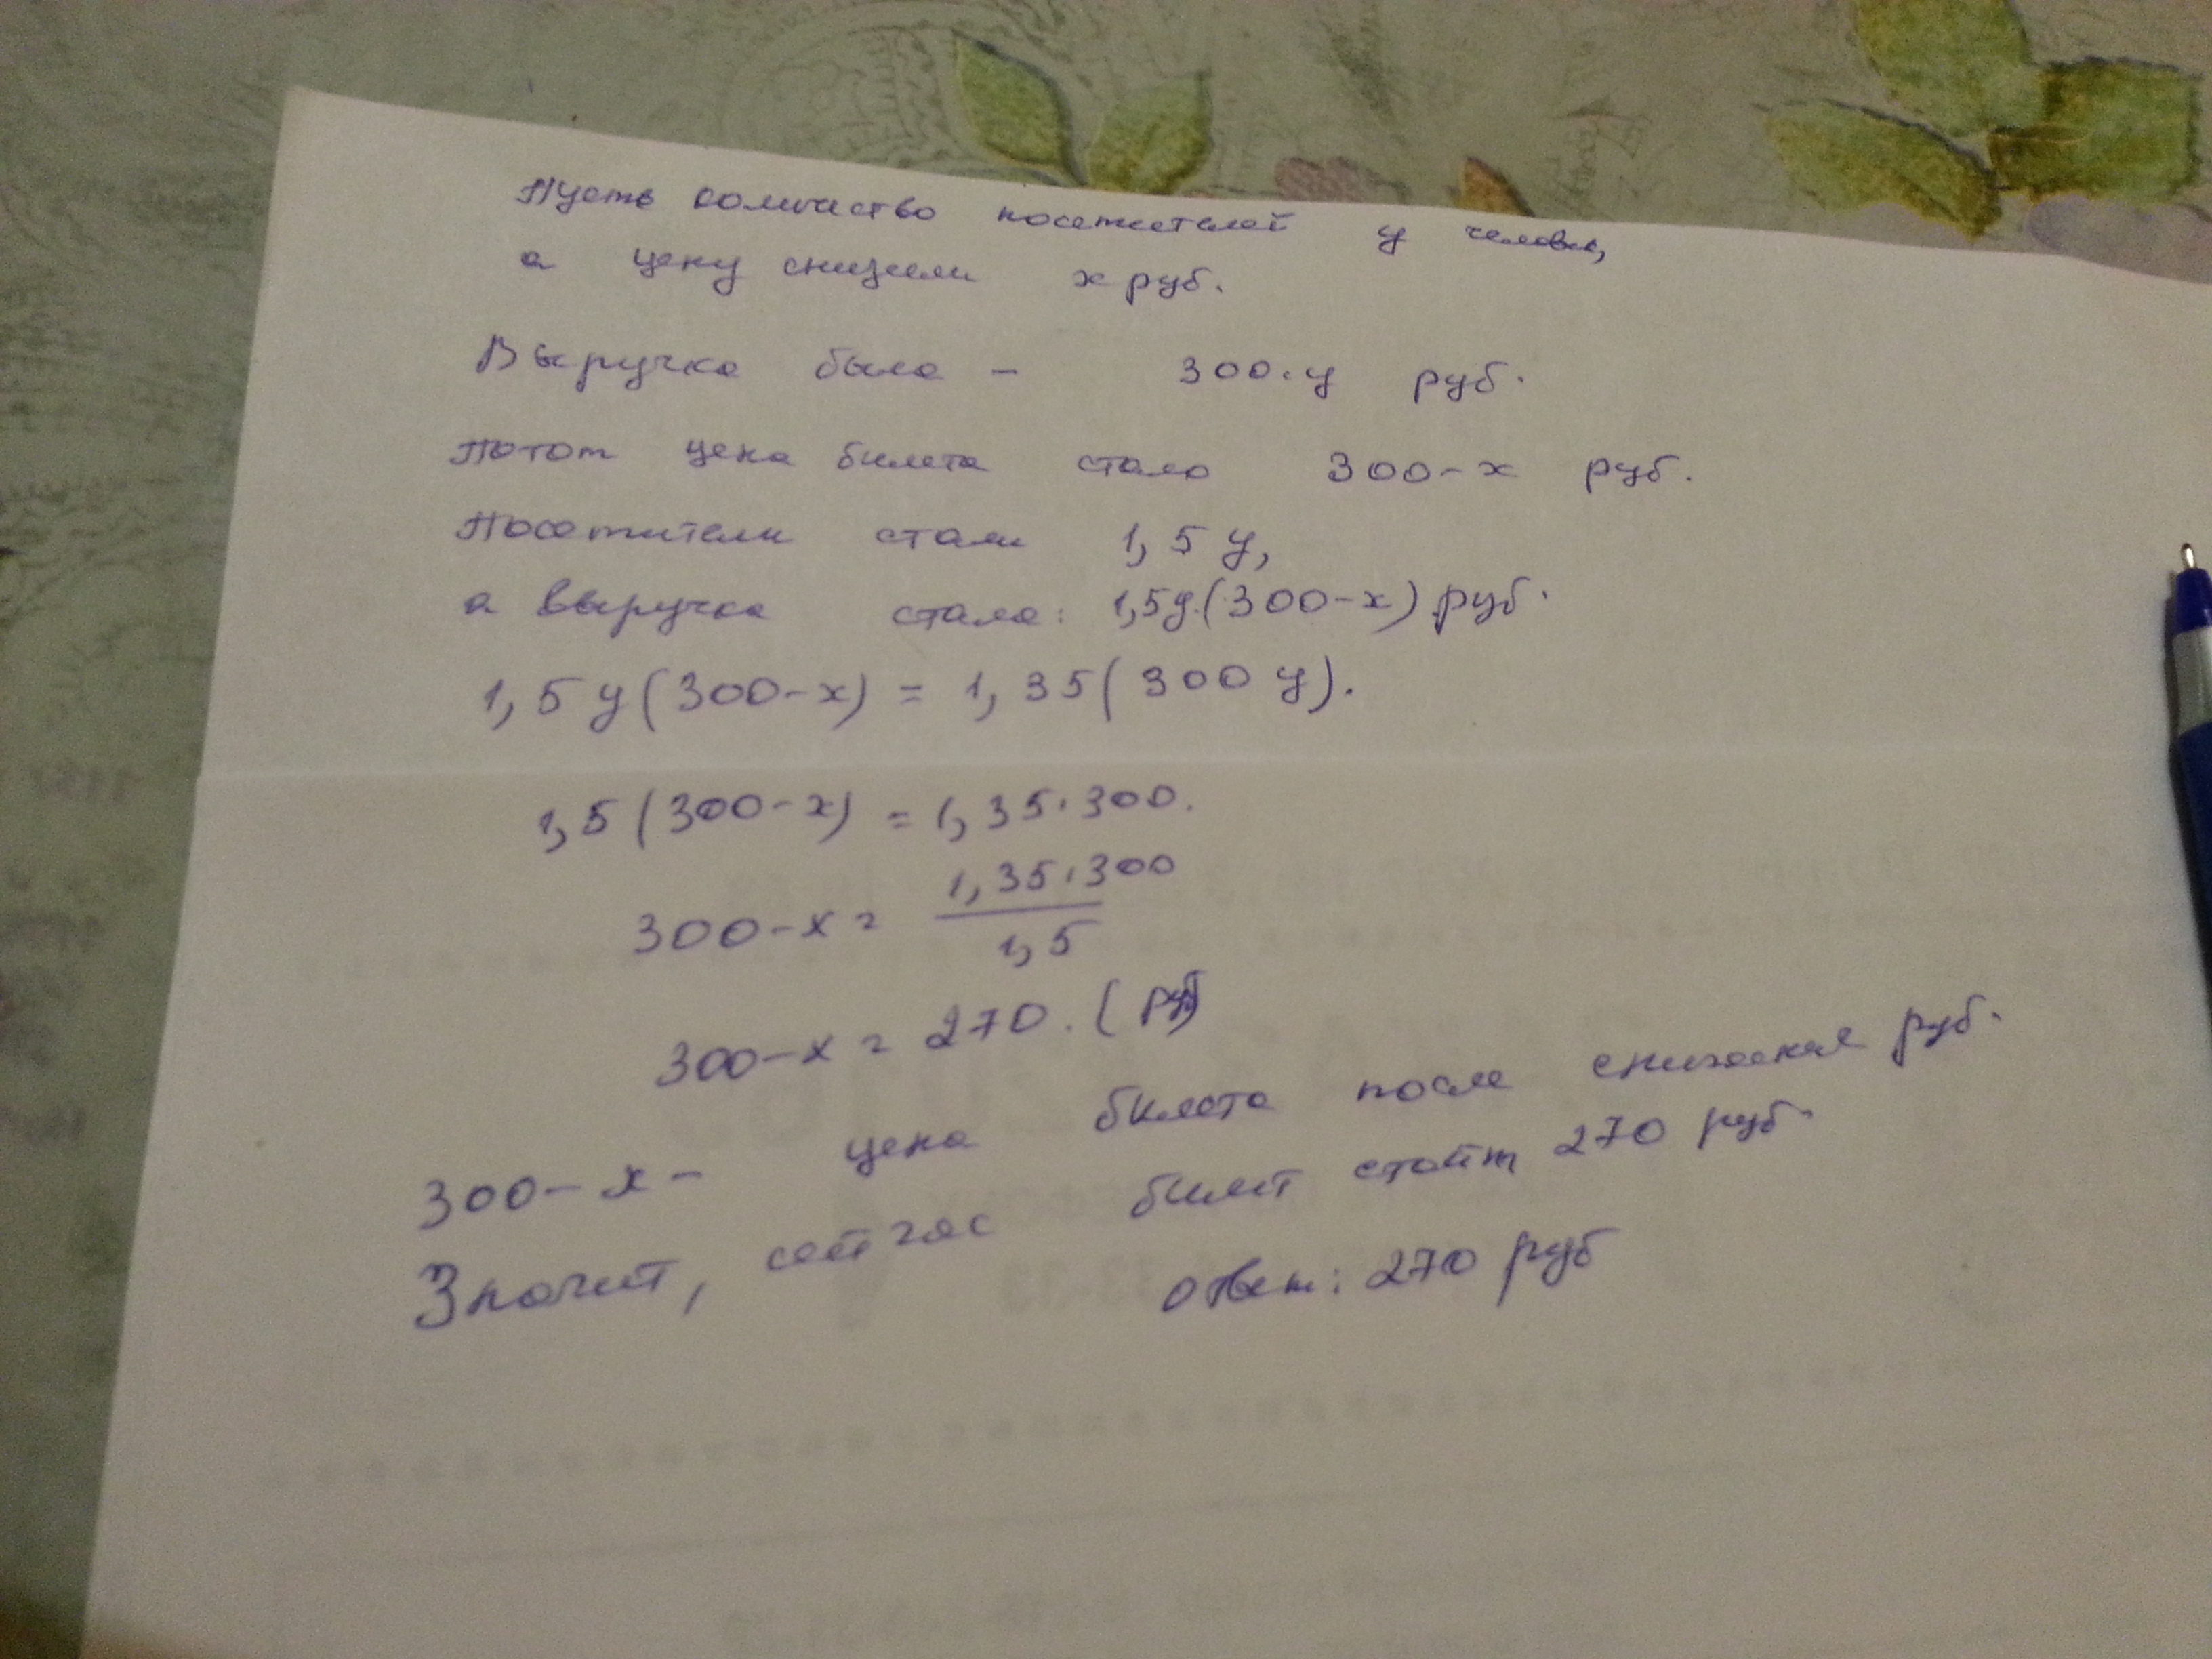 Пусть количество посетителей y человек,
а цену снизили x руб.
Выручка была – 300·y руб.
Потом цена билета стала 300-x руб.
Посетители стали 1,5 y,
а выручка стала: 1,5y·(300-x) руб.
1,5 y(300-x) = 1,35(300 y).
1,5(300-x) = 1,35·300.
300-x = 1,35·300 / 1,5
300-x = 270. (руб)
300-x – цена билета после снижения руб.
Значит, сейчас билет стоит 270 руб.
ответ: 270 руб